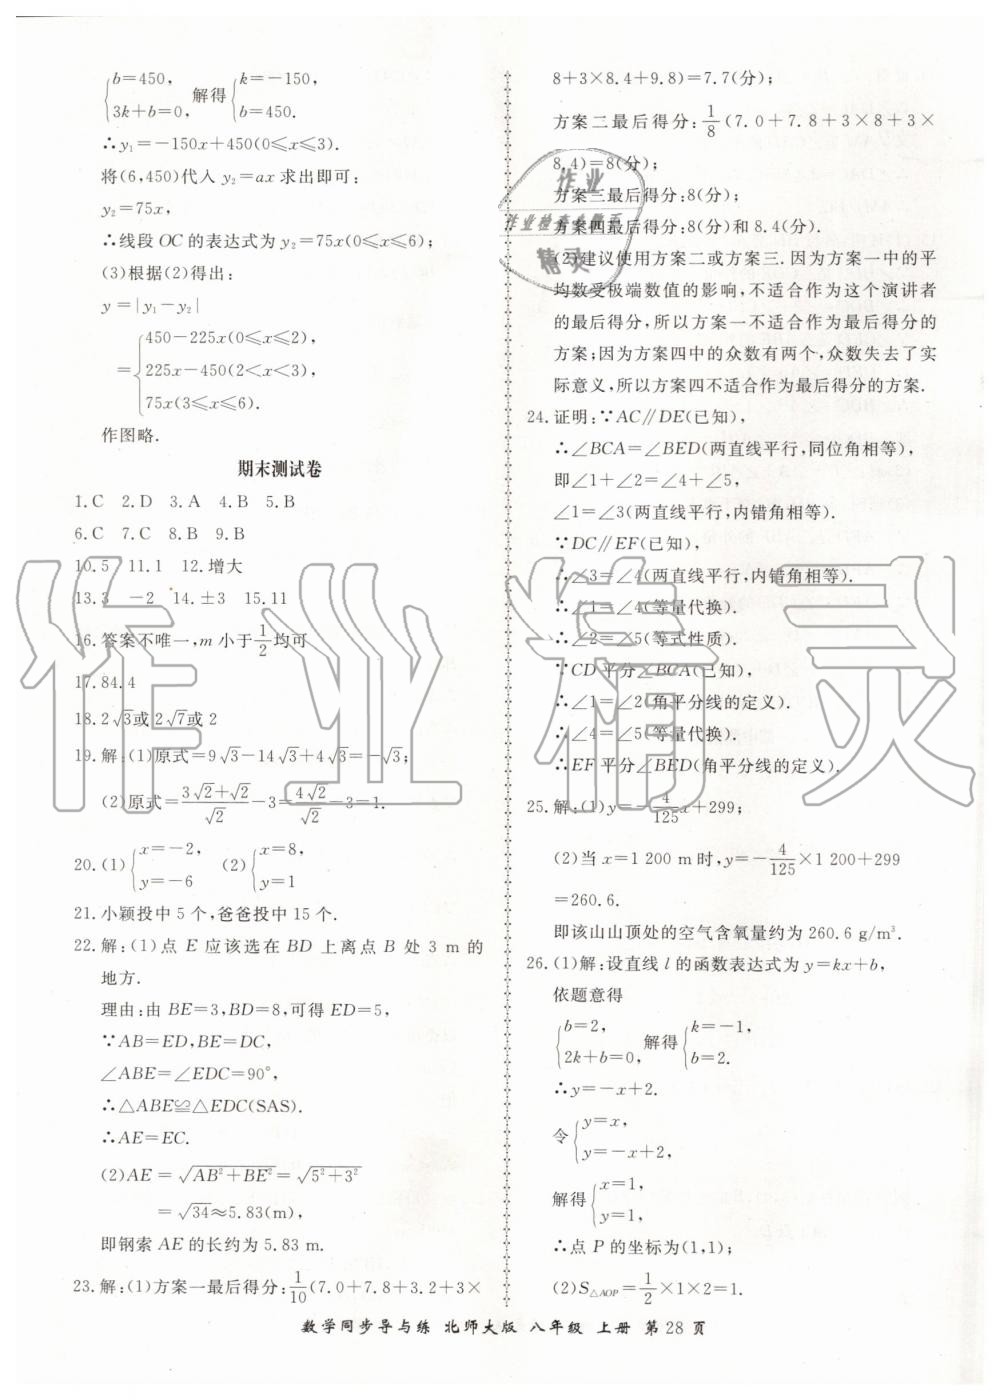 {b=450, 3k+b=0, 解得{k=-150, b=450.
∴y₁=-150x+450(0≤x≤3).
将(6,450)代入 y₂=ax 求出即可:
y₂=75x,
∴线段 OC 的表达式为 y₂=75x(0≤x≤6);
(3)根据(2)得出:
y=|y₁-y₂|
={450-225x(0≤x≤2),
225x-450(2<x<3),
75x(3≤x≤6).
作图略.
期末测试卷
1.C 2.D 3.A 4.B 5.B
6.C 7.C 8.B 9.B
10.5 11.1 12.增大
13.3 -2 14.±3 15.11
16.答案不唯一,m 小于1/2均可
17.84.4
18.2√3或2√7或2
19.解:(1)原式=9√3-14√3+4√3=-√3;
(2)原式=(3√2+√2)/√2-3=4√2/√2-3=1.
20.(1){x=-2, y=-6 (2){x=8, y=1
21.小颖投中 5 个,爸爸投中 15 个.
22.解:(1)点 E 应该选在 BD 上离点 B 处 3 m 的
地方.
理由:由 BE=3,BD=8,可得 ED=5,
∵AB=ED,BE=DC,
∠ABE=∠EDC=90°,
∴△ABE≌△EDC(SAS).
∴AE=EC.
(2)AE=√(AB²+BE²)=√(5²+3²)
=√34≈5.83(m),
即钢索 AE 的长约为 5.83 m.
23.解:(1)方案一最后得分:1/10(7.0+7.8+3.2+3×
8+3×8.4+9.8)=7.7(分);
方案二最后得分:1/8(7.0+7.8+3×8+3×
8.4)=8(分);
方案三最后得分:8(分);
方案四最后得分:8(分)和 8.4(分).
(2)建议使用方案二或方案三.因为方案一中的平
均数受极端数值的影响,不适合作为这个演讲者
的最后得分,所以方案一不适合作为最后得分的
方案;因为方案四中的众数有两个,众数失去了实
际意义,所以方案四不适合作为最后得分的方案.
24.证明:∵AC∥DE(已知),
∴∠BCA=∠BED(两直线平行,同位角相等),
即∠1+∠2=∠4+∠5,
∠1=∠3(两直线平行,内错角相等).
∵DC∥EF(已知),
∴∠3=∠4(两直线平行,内错角相等).
∴∠1=∠4(等量代换).
∴∠2=∠5(等式性质).
∵CD 平分∠BCA(已知),
∴∠1=∠2(角平分线的定义).
∴∠4=∠5(等量代换).
∴EF 平分∠BED(角平分线的定义).
25.解:(1)y=-4/125x+299;
(2)当 x=1 200 m 时,y=-4/125×1 200+299
=260.6.
即该山山顶处的空气含氧量约为 260.6 g/m³.
26.(1)解:设直线 l 的函数表达式为 y=kx+b,
依题意得
{b=2, 2k+b=0, 解得{k=-1, b=2.
∴y=-x+2.
令{y=x, y=-x+2,
解得{x=1, y=1,
∴点 P 的坐标为(1,1);
(2)S△AOP=1/2×1×2=1.
数学同步导与练 北师大版 八年级 上册 第28页
作业
精灵
作业精灵